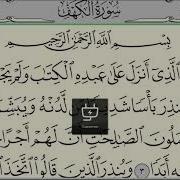 سُورَةُ الْكَهْفِ
بِسْمِ اللَّهِ الرَّحْمَٰنِ الرَّحِيمِ
الَّذِي أَنزَلَ عَلَىٰ عَبْدِهِ الْكِتَٰبَ وَلَمْ يَج
نذِرَ بَأْسًا شَدِيدًا لَّدُنْهُ وَيُبَشِّ
مَلُونَ الصَّٰلِحَٰتِ أَنَّ لَهُمْ أَجْرًا
هِ أَبَدًا ٣ وَيُنذِرَ الَّذِينَ قَالُوا اتَّخَذَ